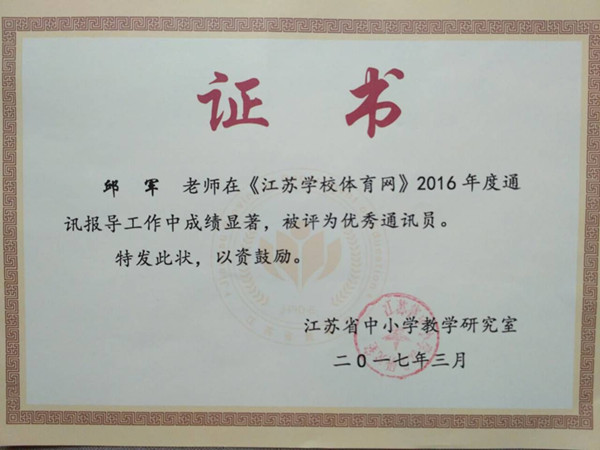 证书
邱军 老师在《江苏学校体育网》2016年度通
讯报导工作中成绩显著，被评为优秀通讯员。
特发此状，以资鼓励。
江苏省中小学教学研究室
二〇一七年三月